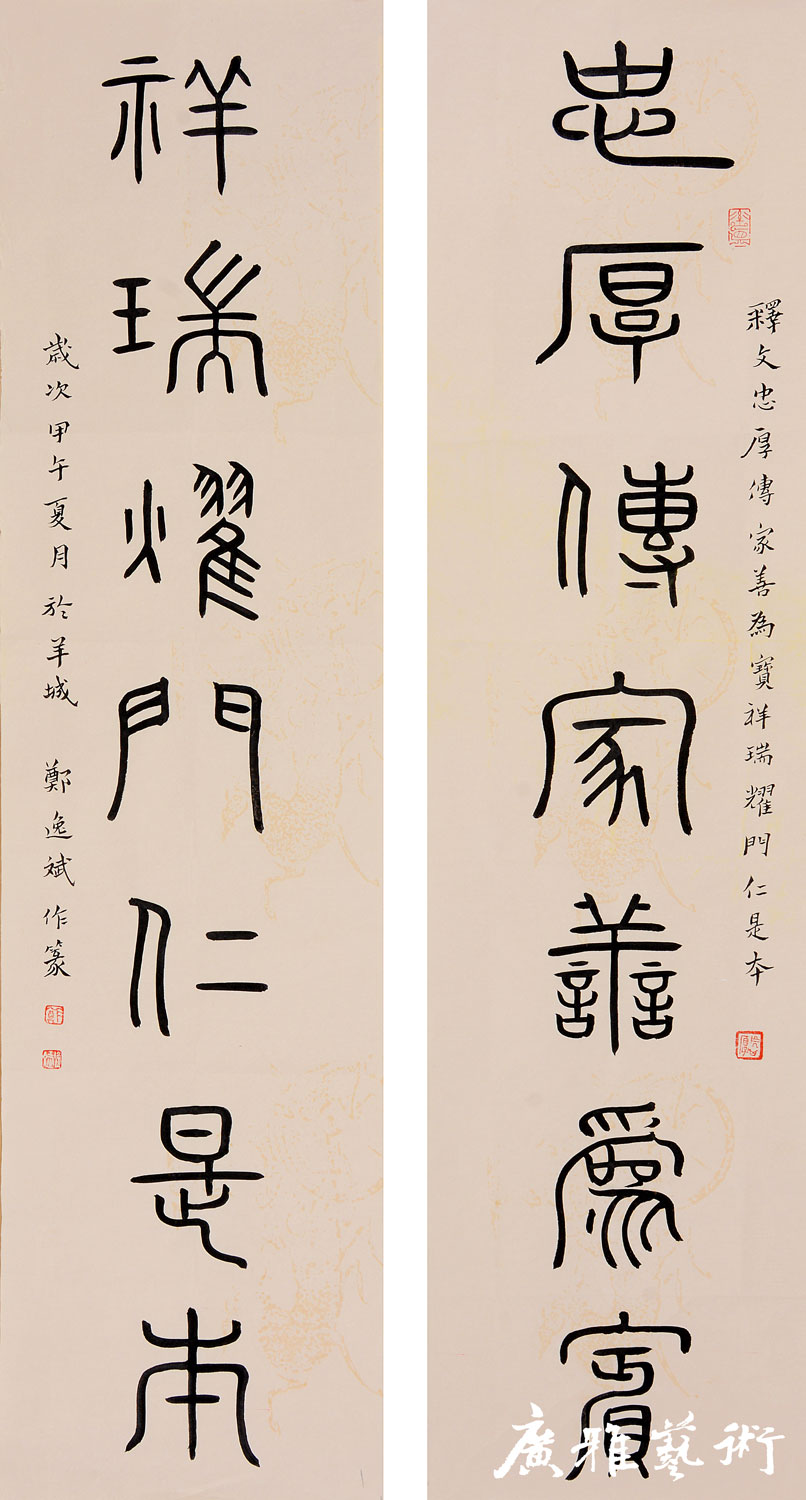 忠厚傳家善為寶
釋文忠厚傳家善為寶祥瑞耀門仁是本
祥瑞燿門仁是本
歲次甲午夏月於羊城 鄭逸斌作篆
廣雅藝術